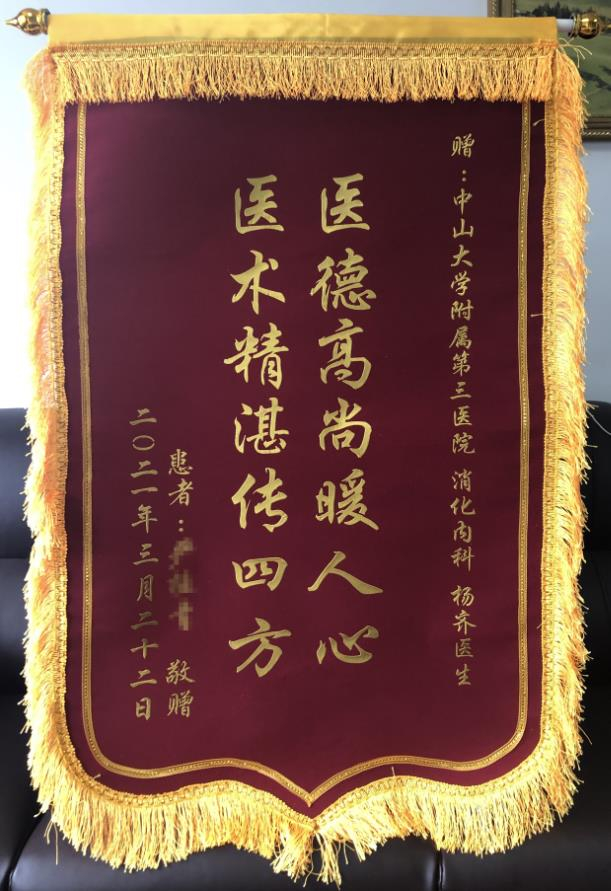 赠：中山大学附属第三医院 消化内科 杨齐医生
医德高尚暖人心
医术精湛传四方
患者： 敬赠
二〇二一年三月二十二日